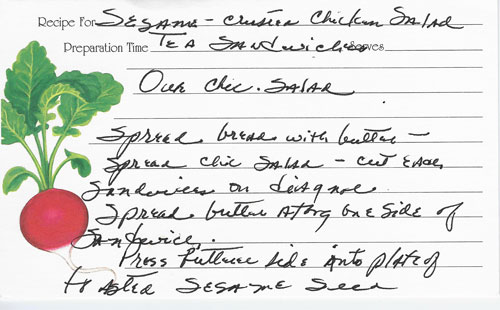 Recipe For Sesama - crusted Chicken Salad
Preparation Time Tea Sandwiches Serves
Our Chic. Salad
Spread bread with butter -
Spread Chic Salad - cut each
Sandwiches on
Spread butter along one side of
Sandwich.
Press Buttered side into plate of
toasted Sesame Seed